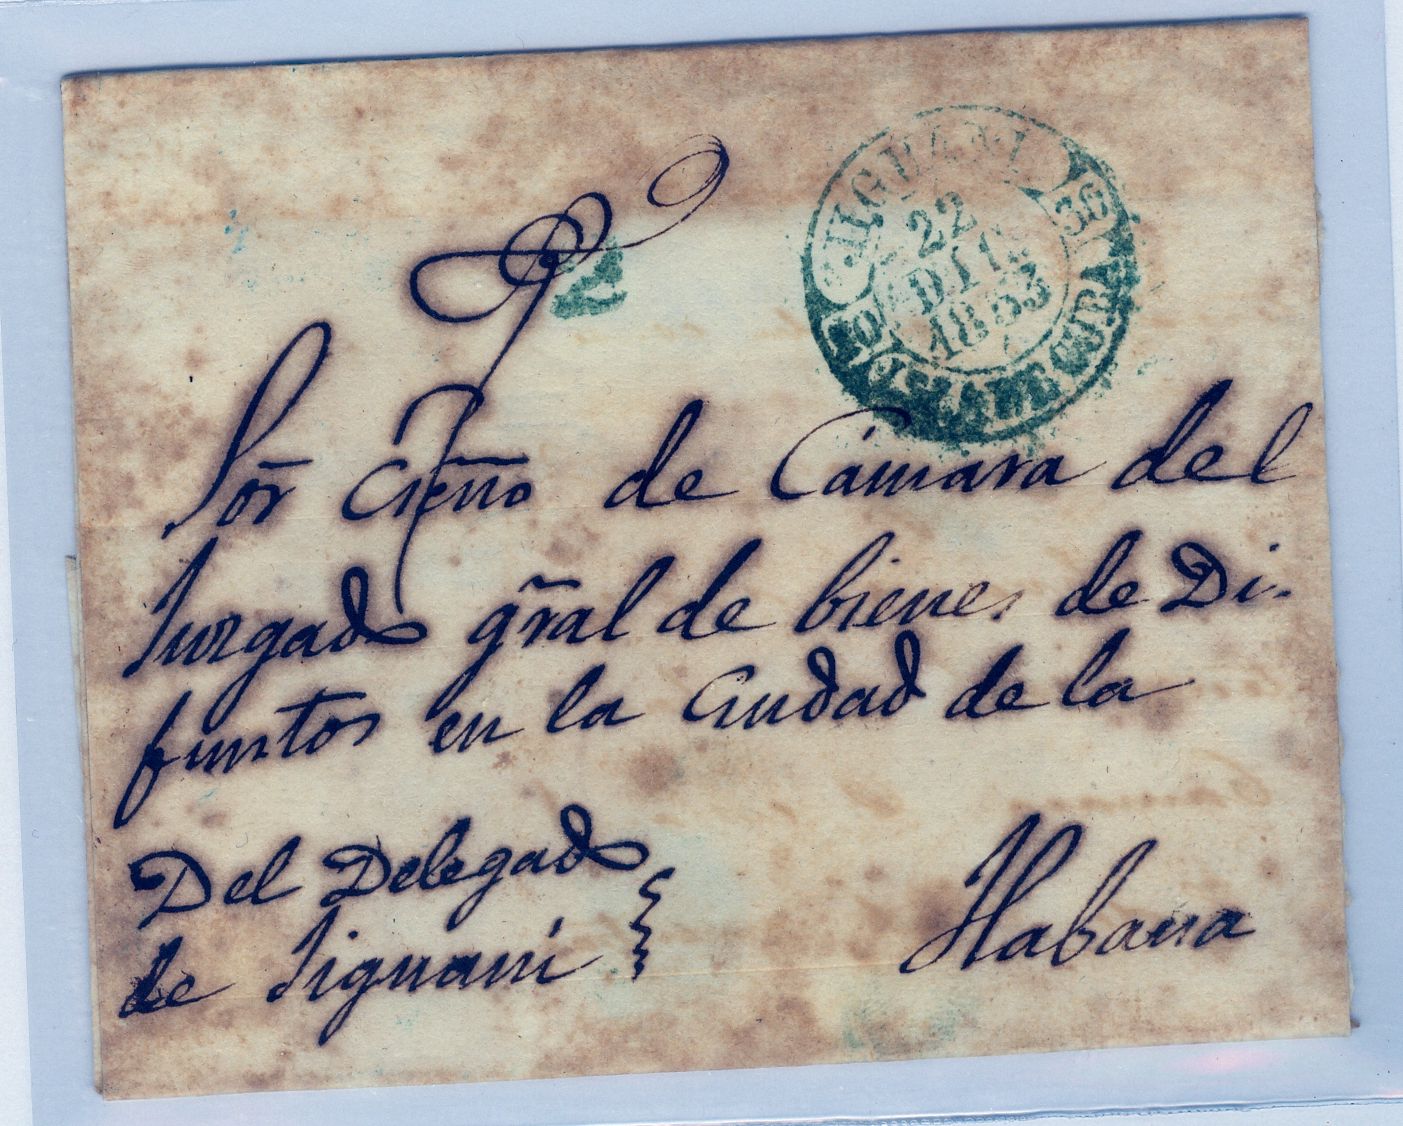 2
JIGUANI
36
22
DIC
1853
ISLA DE CUBA
Sor Essno de Cámara del
Juzgado gral de bienes de Di-
funtos en la Ciudad de la
Habana
Del Delegado
de Jiguaní